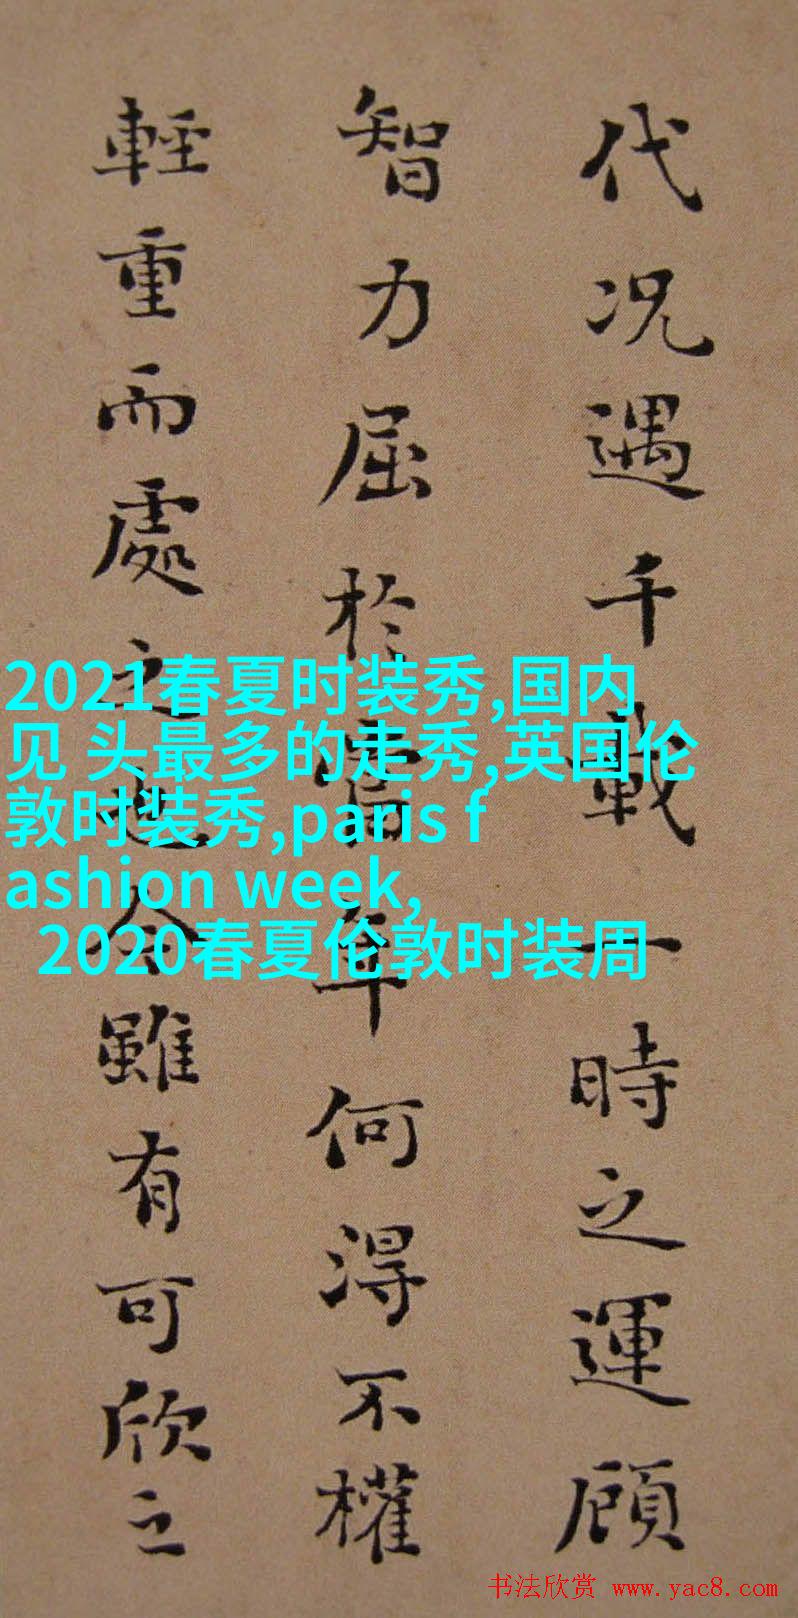 代况遇千載一時之運顧
智力屈於當年何得不權
輕重而處之也今雖有可欣之
2021春夏时装秀,国内
见 头最多的走秀,英国伦
敦时装秀,paris f
ashion week,
2020春夏伦敦时装周
书法欣赏 www.yac8.com